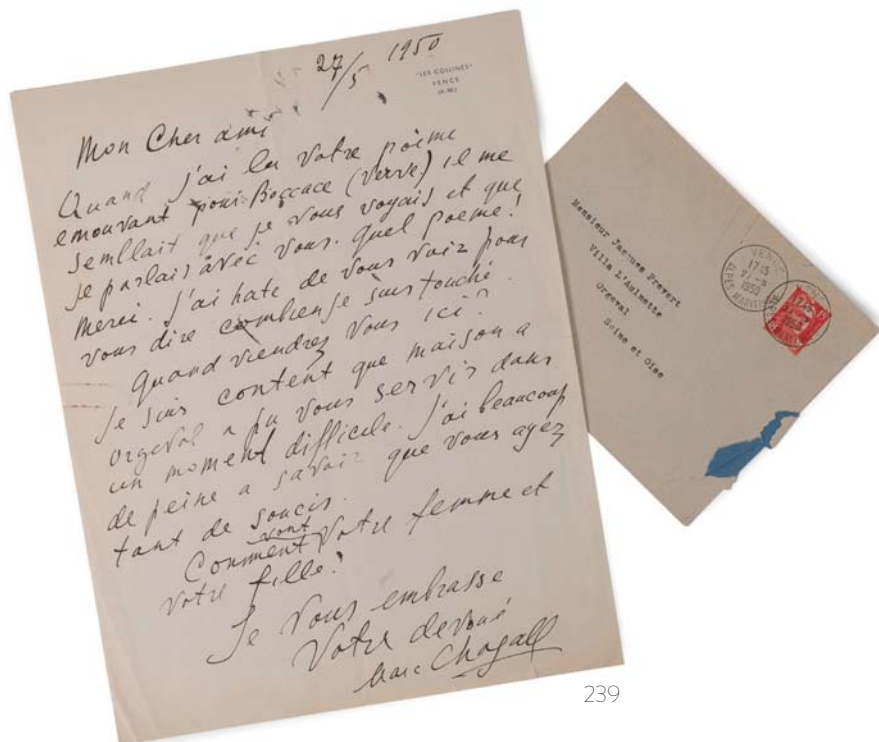 27/5 1950
"LES COLLINES"
VENCE
(A.-M.)
Mon Cher ami
Quand j'ai lu votre poème
emouvant pour Boccace (Verve) il me
semblait que je vous voyais et que
je parlais avec vous. Quel poeme!
Merci. J'ai hate de vous voir pour
vous dire combien je suis touché.
Quand viendrez vous ici?
Je suis content que maison a
orgeval a pu vous servir dans
un moment difficile. J'ai beaucoup
de peine a savoir que vous ayez
tant de soucis.
Comment vont votre femme et
votre fille?
Je vous embrasse
Votre devoué
Marc Chagall
Monsieur Jacques Prevert
Villa L'Aulmette
Orgeval
Seine et Oise
VENCE
17 15
1950
ALPES MARITIMES
239